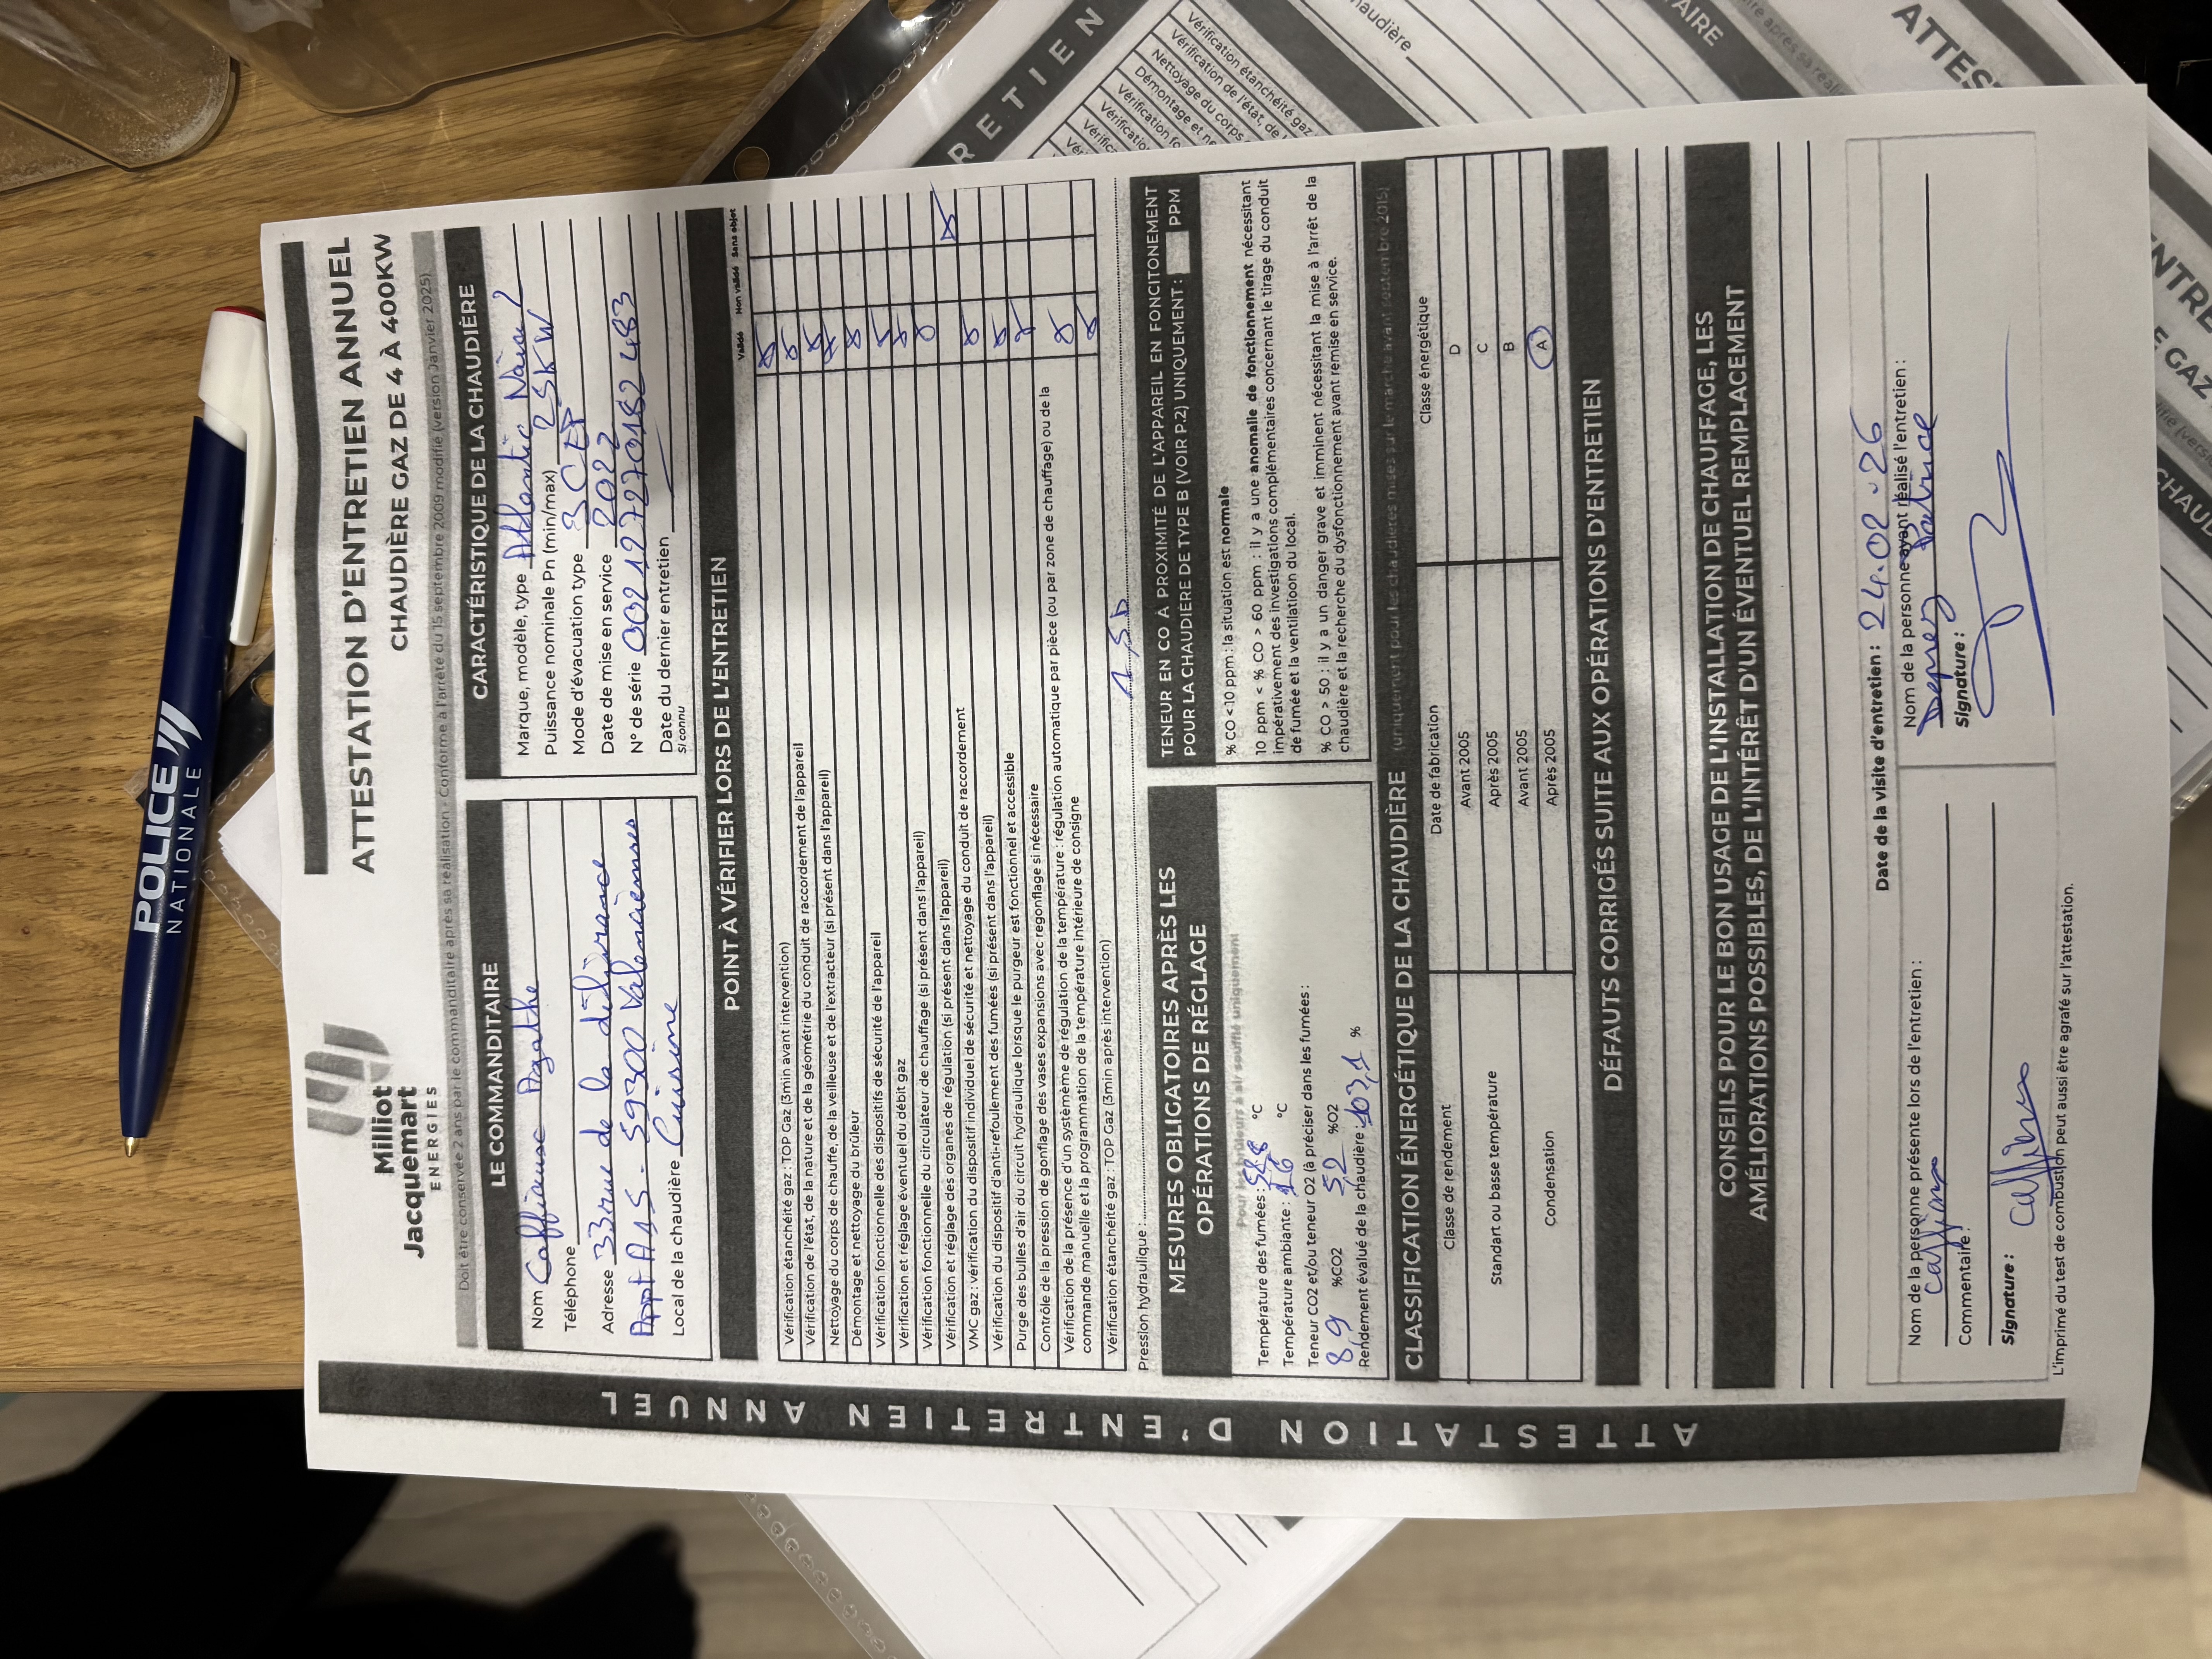 POLICE
NATIONALE
Milliot
Jacquemart
ENERGIES
ATTESTATION D'ENTRETIEN ANNUEL
CHAUDIÈRE GAZ DE 4 À 400KW
Doit être conservée 2 ans par le commanditaire après sa réalisation - Conforme à l'arrêté du 15 septembre 2009 modifié (version Janvier 2025)
ATTESTATION D'ENTRETIEN ANNUEL
LE COMMANDITAIRE
Nom Caffiaux Agathe
Téléphone
Adresse 33 rue de la délivrance
Appt A15 - 59300 Valenciennes
Local de la chaudière Cuisine
CARACTÉRISTIQUE DE LA CHAUDIÈRE
Marque, modèle, type Atlantic Naia 2
Puissance nominale Pn (min/max) 25KW
Mode d'évacuation type 3CEP
Date de mise en service 2022
N° de série
Date du dernier entretien
si connu
POINT À VÉRIFIER LORS DE L'ENTRETIEN
Validé Non validé Sans objet
Vérification étanchéité gaz : TOP Gaz (3min avant intervention)
Vérification de l'état, de la nature et de la géométrie du conduit de raccordement de l'appareil
Nettoyage du corps de chauffe, de la veilleuse et de l'extracteur (si présent dans l'appareil)
Démontage et nettoyage du brûleur
Vérification fonctionnelle des dispositifs de sécurité de l'appareil
Vérification et réglage éventuel du débit gaz
Vérification fonctionnelle du circulateur de chauffage (si présent dans l'appareil)
Vérification et réglage des organes de régulation (si présent dans l'appareil)
VMC gaz : vérification du dispositif individuel de sécurité et nettoyage du conduit de raccordement
Vérification du dispositif d'anti-refoulement des fumées (si présent dans l'appareil)
Purge des bulles d'air du circuit hydraulique lorsque le purgeur est fonctionnel et accessible
Contrôle de la pression de gonflage des vases expansions avec regonflage si nécessaire
Vérification de la présence d'un système de régulation de la température : régulation automatique par pièce (ou par zone de chauffage) ou de la
commande manuelle et la programmation de la température intérieure de consigne
Vérification étanchéité gaz : TOP Gaz (3min après intervention)
Pression hydraulique :
MESURES OBLIGATOIRES APRÈS LES
OPÉRATIONS DE RÉGLAGE
Pour les brûleurs à air soufflé uniquement
Température des fumées : °C
Température ambiante : 16 °C
Teneur CO2 et/ou teneur O2 (à préciser dans les fumées :
8,9 %CO2 5,2 %O2
Rendement évalué de la chaudière : 103,1 %
TENEUR EN CO À PROXIMITÉ DE L'APPAREIL EN FONCITONEMENT
POUR LA CHAUDIÈRE DE TYPE B (VOIR P.2) UNIQUEMENT : PPM
% CO <10 ppm : la situation est normale
10 ppm < % CO > 60 ppm : il y a une anomalie de fonctionnement nécessitant
impérativement des investigations complémentaires concernant le tirage du conduit
de fumée et la ventilation du local.
% CO > 50 : il y a un danger grave et imminent nécessitant la mise à l'arrêt de la
chaudière et la recherche du dysfonctionnement avant remise en service.
CLASSIFICATION ÉNERGÉTIQUE DE LA CHAUDIÈRE (uniquement pour les chaudières mises sur le marché avant septembre 2015)
Classe de rendement Date de fabrication Classe énergétique
Standart ou basse température Avant 2005 D
Après 2005 C
Condensation Avant 2005 B
Après 2005 A
DÉFAUTS CORRIGÉS SUITE AUX OPÉRATIONS D'ENTRETIEN
CONSEILS POUR LE BON USAGE DE L'INSTALLATION DE CHAUFFAGE, LES
AMÉLIORATIONS POSSIBLES, DE L'INTÉRÊT D'UN ÉVENTUEL REMPLACEMENT
Date de la visite d'entretien : 24.02.26
Nom de la personne présente lors de l'entretien :
Caffiaux
Commentaire :
Signature : Caffiaux
Nom de la personne ayant réalisé l'entretien :
Patrice
Signature :
L'imprimé du test de combustion peut aussi être agrafé sur l'attestation.
RETIEN
haudière
Vérification étanchéité gaz
Vérification de l'état, de
Nettoyage du corps
Démontage et ne
Vérification fo
Vérification
AIRE
ATTES